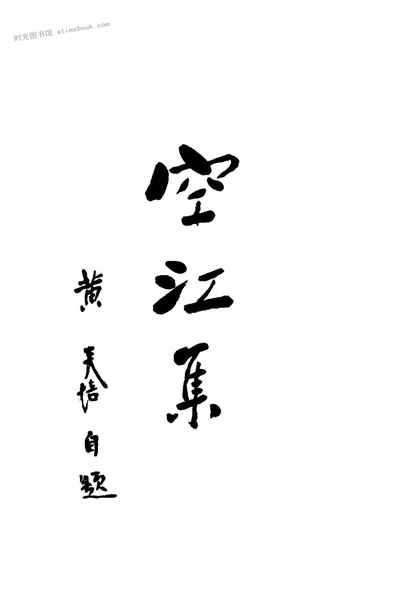 时光图书馆 etimebook.com
空江集
黄炎培自题